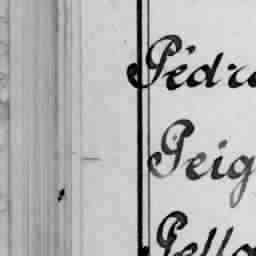 Pédr
Peig
Pella